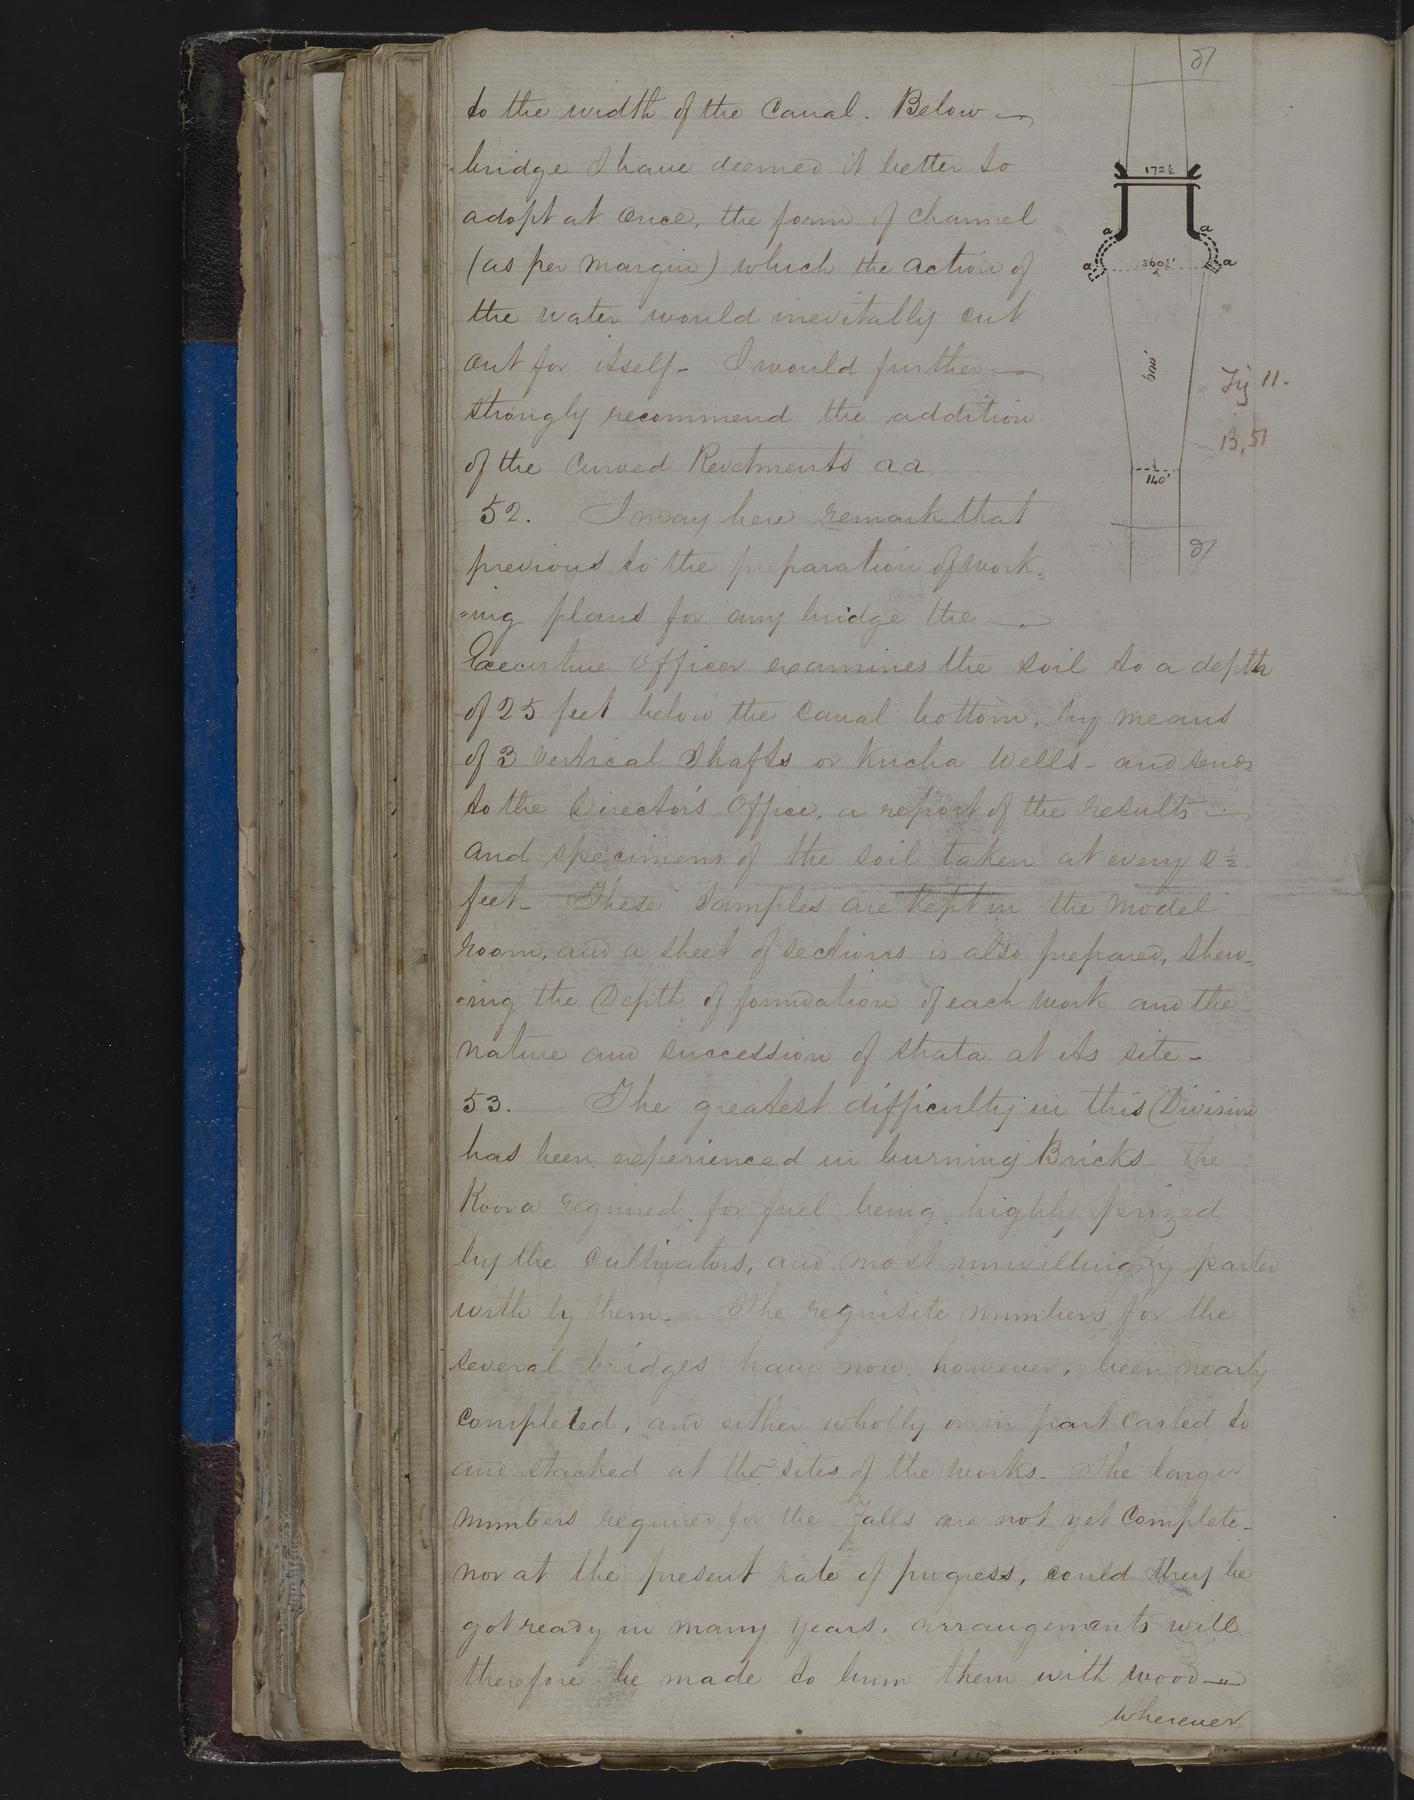 to the width of the Canal. Below —
bridge I have deemed it better to
adopt at once, the form of channel
(as per margin) which the action of
the water would inevitably cut
out for itself - I would further —
strongly recommend the addition
of the Curved Revetments a a.
172½
a a
a a
360½'
600'
140'
Fig 11.
52. I may here remark that
previous to the preparation of work=
=ing plans for any bridge the —
Executive Officer examines the soil to a depth
of 25 feet below the Canal bottom, by means
of 3 vertical Shafts or Kucha Wells - and sends
to the Director's Office, a report of the results —
and specimens of the soil taken at every 2½
feet - These Samples are kept in the Model
room, and a sheet of sections is also prepared, shew=
=ing the Depth of foundation of each work and the
nature and succession of strata at its site -
53. The greatest difficulty in this Division
has been experienced in burning Bricks - The
Koora required for fuel being highly prized
by the Cultivators, and most unwillingly parted
with by them - The requisite numbers for the
several bridges have now, however, been nearly
completed, and either wholly or in part Carted to
and stacked at the sites of the works - The larger
numbers required for the Falls are not yet Complete -
nor at the present rate of progress, could they be
got ready in many years. arrangements will
therefore be made to burn them with wood —
wherever